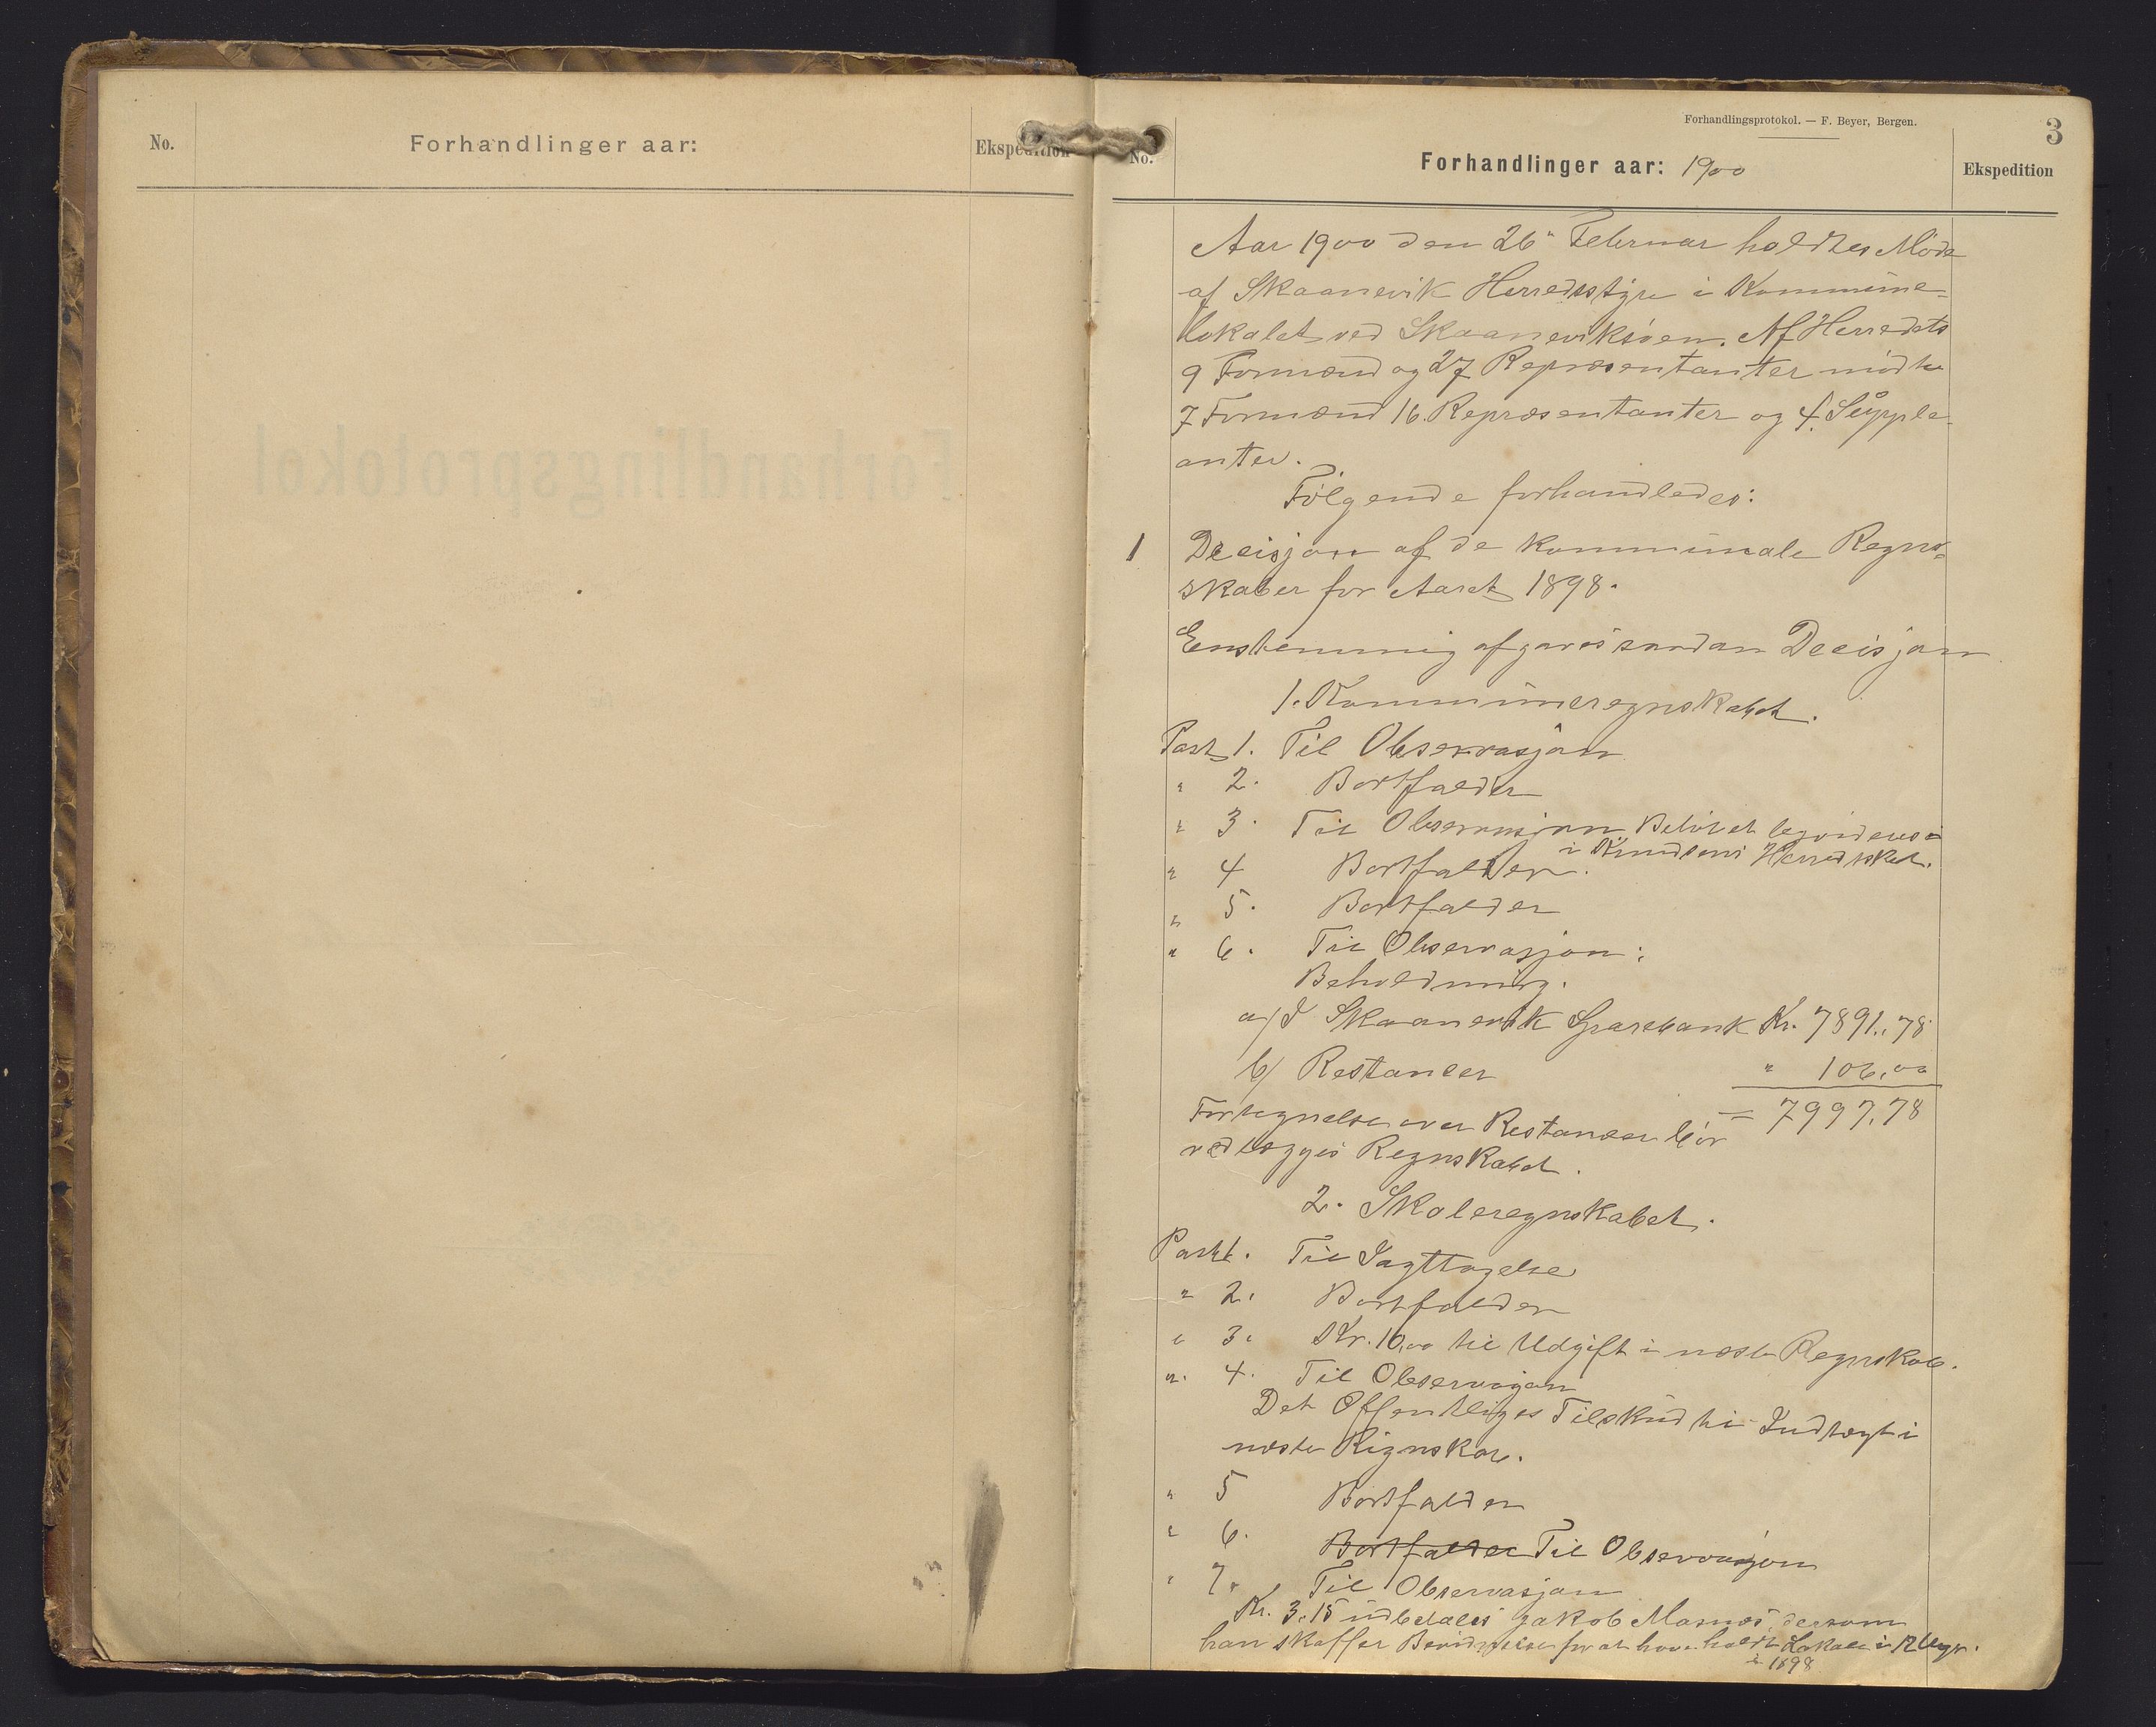 No.
Forhandlinger aar:
Ekspedition
Forhandlingsprotokol. — F. Beyer, Bergen.
3
No.
Forhandlinger aar: 1900
Ekspedition
Aar 1900 den 26 Februar holdtes Møde
af Skaanevik Herredsstyre i Kommune-
lokalet ved Skaaneviksøen. Af Herredets
9 Formænd og 27 Repræsentanter mødte
7 Formænd 16 Repræsentanter og 4 Supple-
anter.
Følgende forhandledes:
1 Decisjon af de kommunale Regns-
skaber for Aaret 1898.
Eenstemmig afgaves saadan Decisjon
1. Kommuneregnskabet.
Post 1. Til Observasjon
" 2. Bortfalder
" 3. Til Observasjon Beløbet
i Herredskas.
" 4 Bortfalder.
" 5. Bortfalder
" 6. Til Observasjon:
Beholdning.
a/ I Skaanevik Sparebank Kr. 7891,78
b/ Restancer " 106,00
= 7997,78
Fortegnelse over Restancer bør
vedlægges Regnskabet.
2. Skoleregnskabet.
Post 1. Til Iagttagelse
" 2. Bortfalder
" 3. Kr. 10,00 til Udgift i næste Regnskab.
" 4. Til Observasjon
Det Offentliges Tilskud til Indtægt i
næste Regnskab.
" 5 Bortfalder
" 6. Bortfalder Til Observasjon
" 7. Til Observasjon
Kr. 3.15 udbetales Jakob dersom
han skaffer Bevidnelse for at have holdt Lokale i 12 Uger.
i 1898